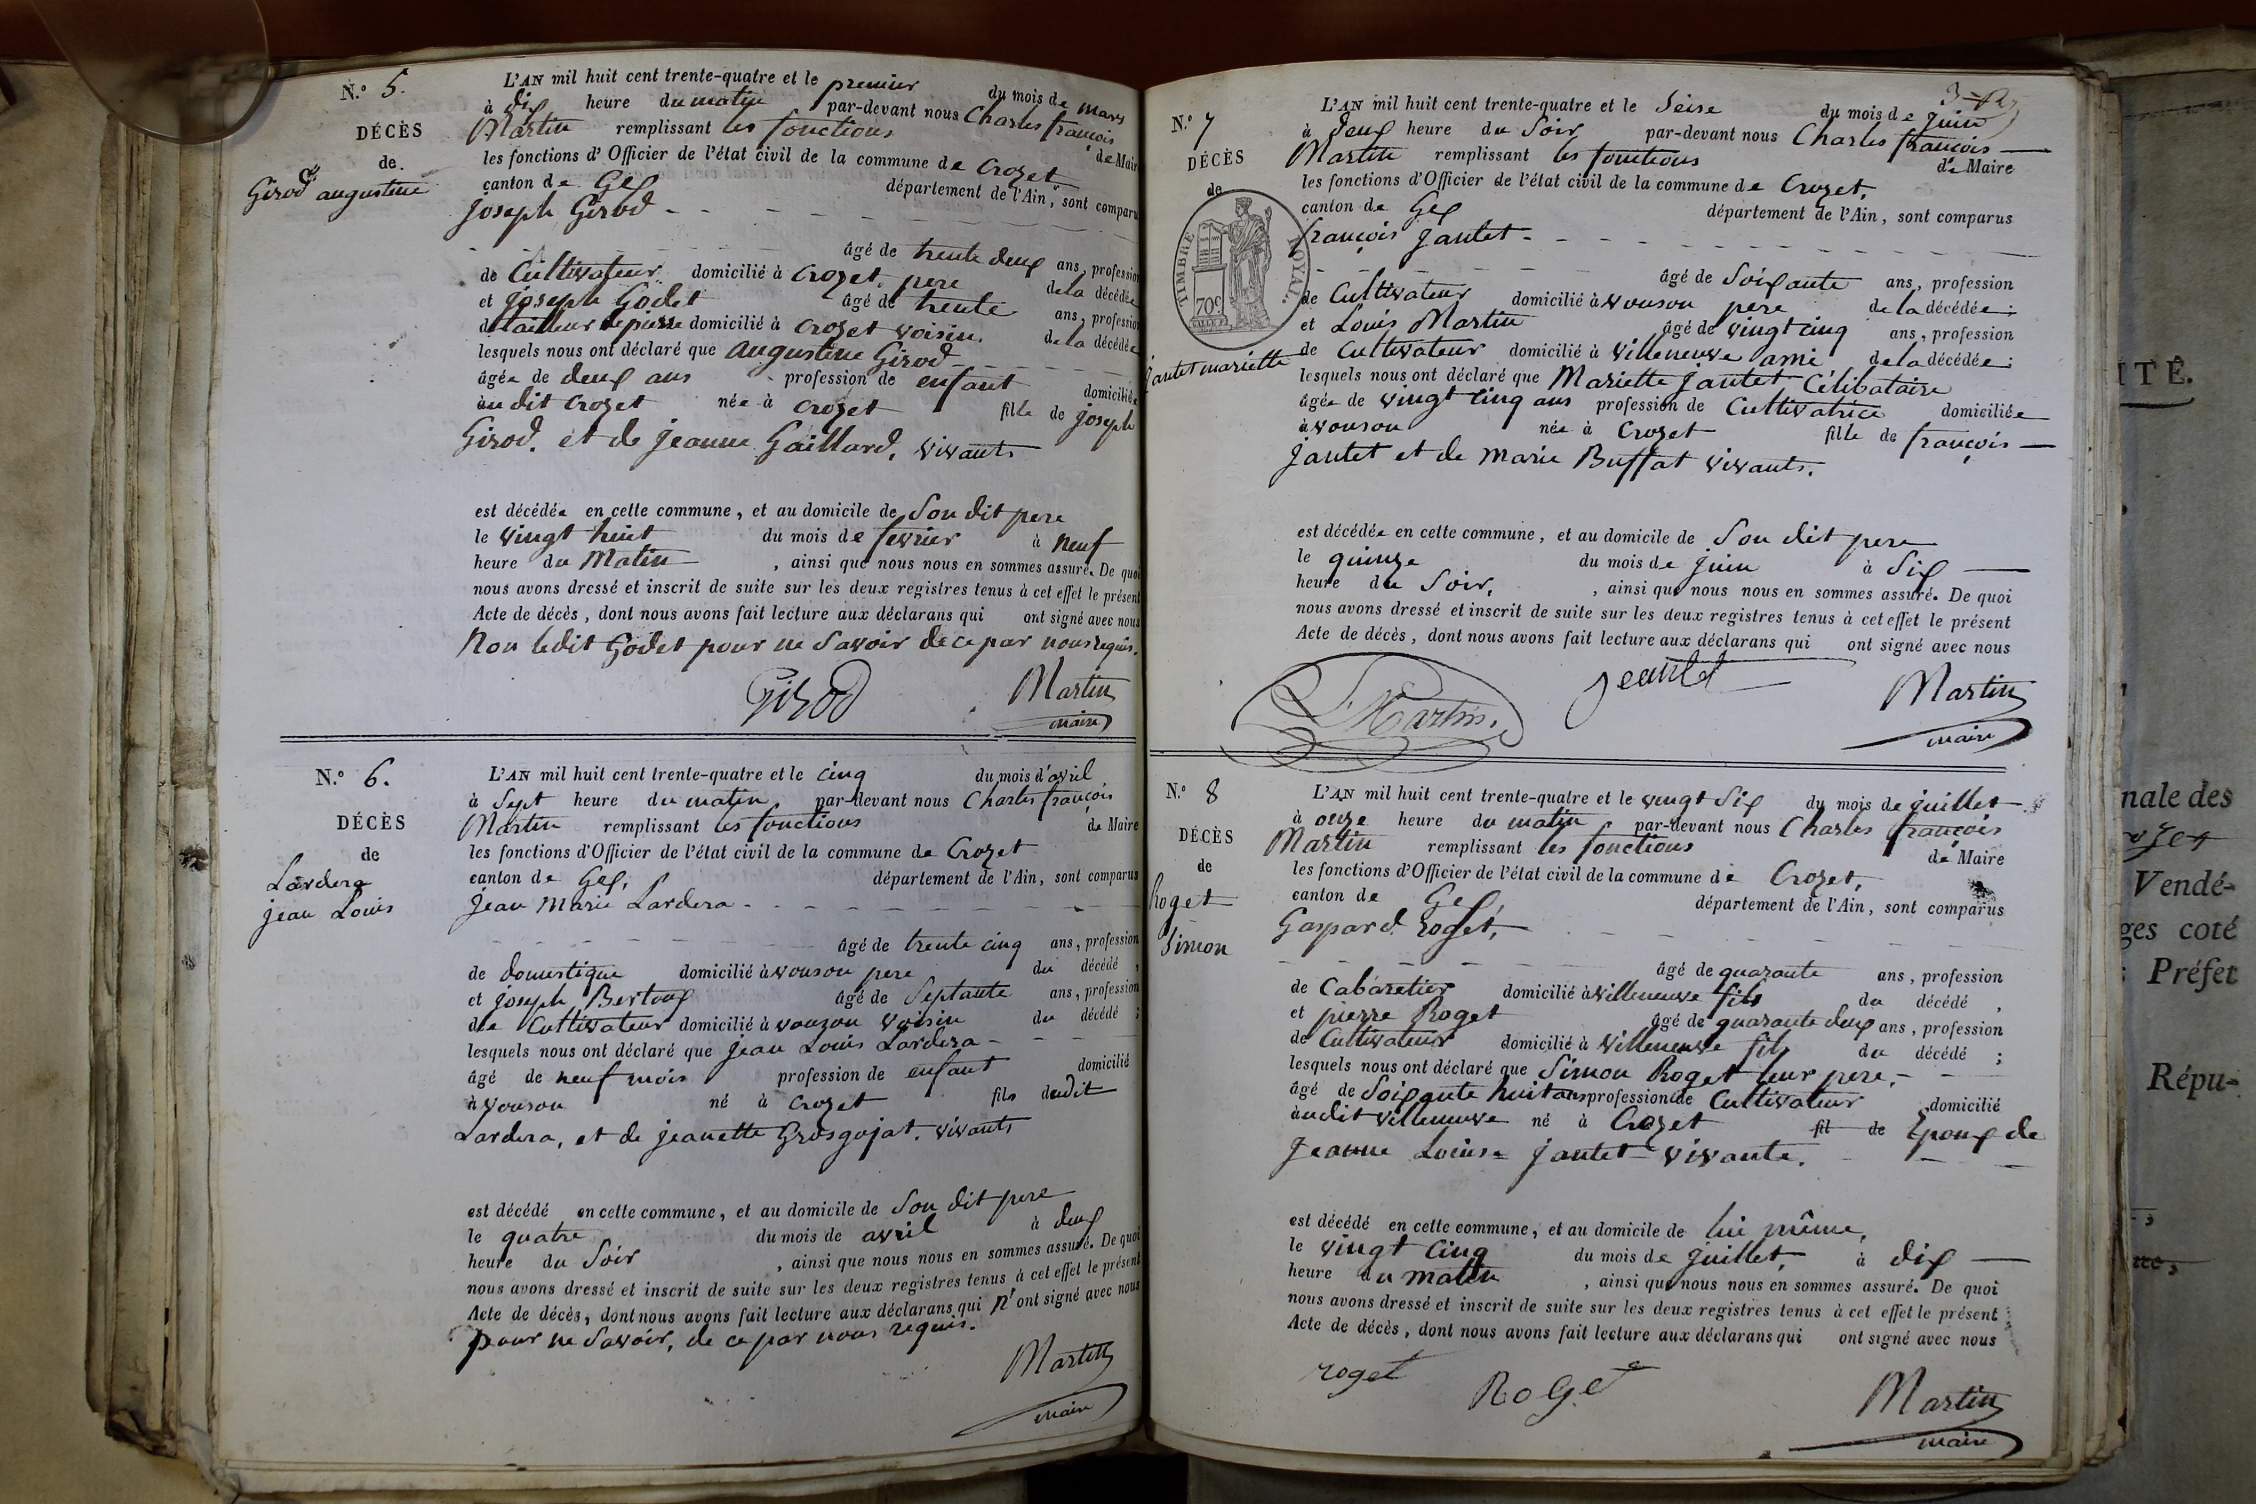 N.º 5.
DÉCÈS
de.
Girod augustine
L'AN mil huit cent trente-quatre et le premier du mois de mars
à dix heure du matin par-devant nous Charles françois
Martin remplissant les fonctions de Maire
les fonctions d'Officier de l'état civil de la commune de Crozet
canton de Gex département de l'Ain, sont comparu
joseph Girod
âgé de trente deux ans, profession
de Cultivateur domicilié à Crozet, pere de la décédée
et joseph Godet âgé de trente ans, profession
de tailleur de pierre domicilié à Crozet voisin. de la décédée
lesquels nous ont déclaré que augustine Girod
âgée de deux ans profession de enfant domiciliée
au dit Crozet née à Crozet fille de joseph
Girod. et de jeanne Gaillard, vivants
est décédée en cette commune, et au domicile de Son dit pere
le vingt huit du mois de fevrier à neuf
heure du Matin , ainsi que nous nous en sommes assuré. De quoi
nous avons dressé et inscrit de suite sur les deux registres tenus à cet effet le présent
Acte de décès, dont nous avons fait lecture aux déclarans qui ont signé avec nous
Non ledit Godet pour ne Savoir de ce par nous requis.
Girod Martin
maire
N.º 6.
DÉCÈS
de
Lardera
jean Louis
L'AN mil huit cent trente-quatre et le cinq du mois d'avril
à Sept heure du matin par-devant nous Charles françois
Martin remplissant les fonctions de Maire
les fonctions d'Officier de l'état civil de la commune de Crozet
canton de Gex, département de l'Ain, sont comparus
jean Marie Lardera
âgé de trente cinq ans, profession
de domestique domicilié à vouson pere du décédé ,
et joseph Bertoux âgé de Septante ans, profession
de Cultivateur domicilié à vouzon voisin du décédé ;
lesquels nous ont déclaré que jean Louis Lardera
âgé de neuf mois profession de enfant domicilié
à vouson né à Crozet fils dudit
Lardera, et de jeanette Grosgojat. vivants
est décédé en cette commune, et au domicile de Son dit pere
le quatre du mois de avril à deux
heure du Soir , ainsi que nous nous en sommes assuré. De quoi
nous avons dressé et inscrit de suite sur les deux registres tenus à cet effet le présent
Acte de décès, dont nous avons fait lecture aux déclarans qui n'ont signé avec nous
pour ne Savoir, de ce par nous requis.
Martin
maire
N.º 7
DÉCÈS
de
TIMBRE ROYAL.
70c
jantet mariette
L'AN mil huit cent trente-quatre et le Seise du mois de juin
à deux heure du Soir par-devant nous Charles françois
Martin remplissant les fonctions de Maire
les fonctions d'Officier de l'état civil de la commune de Crozet,
canton de Gex département de l'Ain, sont comparus
françois jantet
âgé de Soixante ans, profession
de Cultivateur domicilié à vouson pere de la décédée;
et Louis Martin âgé de vingt cinq ans, profession
de Cultivateur domicilié à villeneuve ami de la décédée;
lesquels nous ont déclaré que Mariette jantet Célibataire
âgée de vingt cinq ans profession de Cultivatrice domiciliée
à vouson née à Crozet fille de françois
jantet et de marie Buffat vivants.
est décédée en cette commune, et au domicile de Son dit pere
le quinze du mois de juin à Six
heure du Soir. , ainsi que nous nous en sommes assuré. De quoi
nous avons dressé et inscrit de suite sur les deux registres tenus à cet effet le présent
Acte de décès, dont nous avons fait lecture aux déclarans qui ont signé avec nous
L. Martin. jeantet Martin
maire
N.º 8
DÉCÈS
de
Roget
Simon
L'AN mil huit cent trente-quatre et le vingt Six du mois de juillet
à onze heure du matin par-devant nous Charles françois
Martin remplissant les fonctions de Maire
les fonctions d'Officier de l'état civil de la commune de Crozet,
canton de Gex, département de l'Ain, sont comparus
Gaspard Roget,
âgé de quarante ans, profession
de Cabaretier domicilié à villeneuve fils du décédé ,
et pierre Roget âgé de quarante deux ans, profession
de Cultivateur domicilié à villeneuve fils du décédé ;
lesquels nous ont déclaré que Simon Roget leur pere,
âgé de Soixante huit ans profession de Cultivateur domicilié
au dit villeneuve né à Crozet fil de Epoux de
jeanne Louise jantet vivante.
est décédé en cette commune, et au domicile de lui même,
le vingt Cinq du mois de juillet, à dix
heure du matin , ainsi que nous nous en sommes assuré. De quoi
nous avons dressé et inscrit de suite sur les deux registres tenus à cet effet le présent
Acte de décès, dont nous avons fait lecture aux déclarans qui ont signé avec nous
roget Roget Martin
maire
ITÉ.
nale des
Vendé-
ges coté
Préfet
Répu-